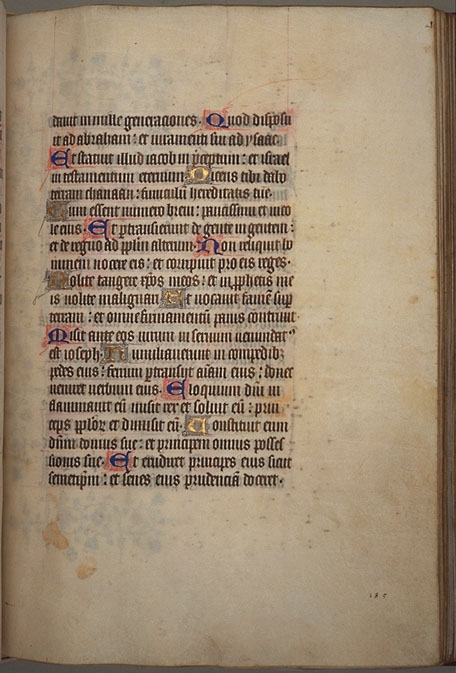 dauit in mille generaciones. Quod disposu
it ad abraham: et iuramenti sui ad ysaac.
Et statuit illud iacob in p̄ceptum: et israel
in testamentum eternum. Dicens tibi dabo
terram chanaan: funiculū hereditatis v̄re.
Cum essent numero breui: paucissimi et inco
le eius. Et ꝑtransierunt de gente in gentem:
et de regno ad pp̄lm alterum. Non reliquit ho
minem nocere eis: et corripuit pro eis reges.
Nolite tangere xp̄os meos: et in ꝓphetis me
is nolite malignari. Et uocauit famē suꝑ
terram: et omne firmamentū panis contriuit.
Misit ante eos uirum in seruum uenundatꝰ
est ioseph. Humiliauerunt in compedibꝫ
pedes eius: ferrum ꝑtransijt aīam eius: donec
ueniret uerbum eius. Eloquium dn̄i in
flammauit eū misit rex et soluit eū: prin
ceps pplōꝝ et dimisit eū. Constituit eum
dn̄m domus sue: et principem omnis posses
sionis sue. Et erudiret principes eius sicut
semetip̄m: et senes eius prudenciā doceret.
185